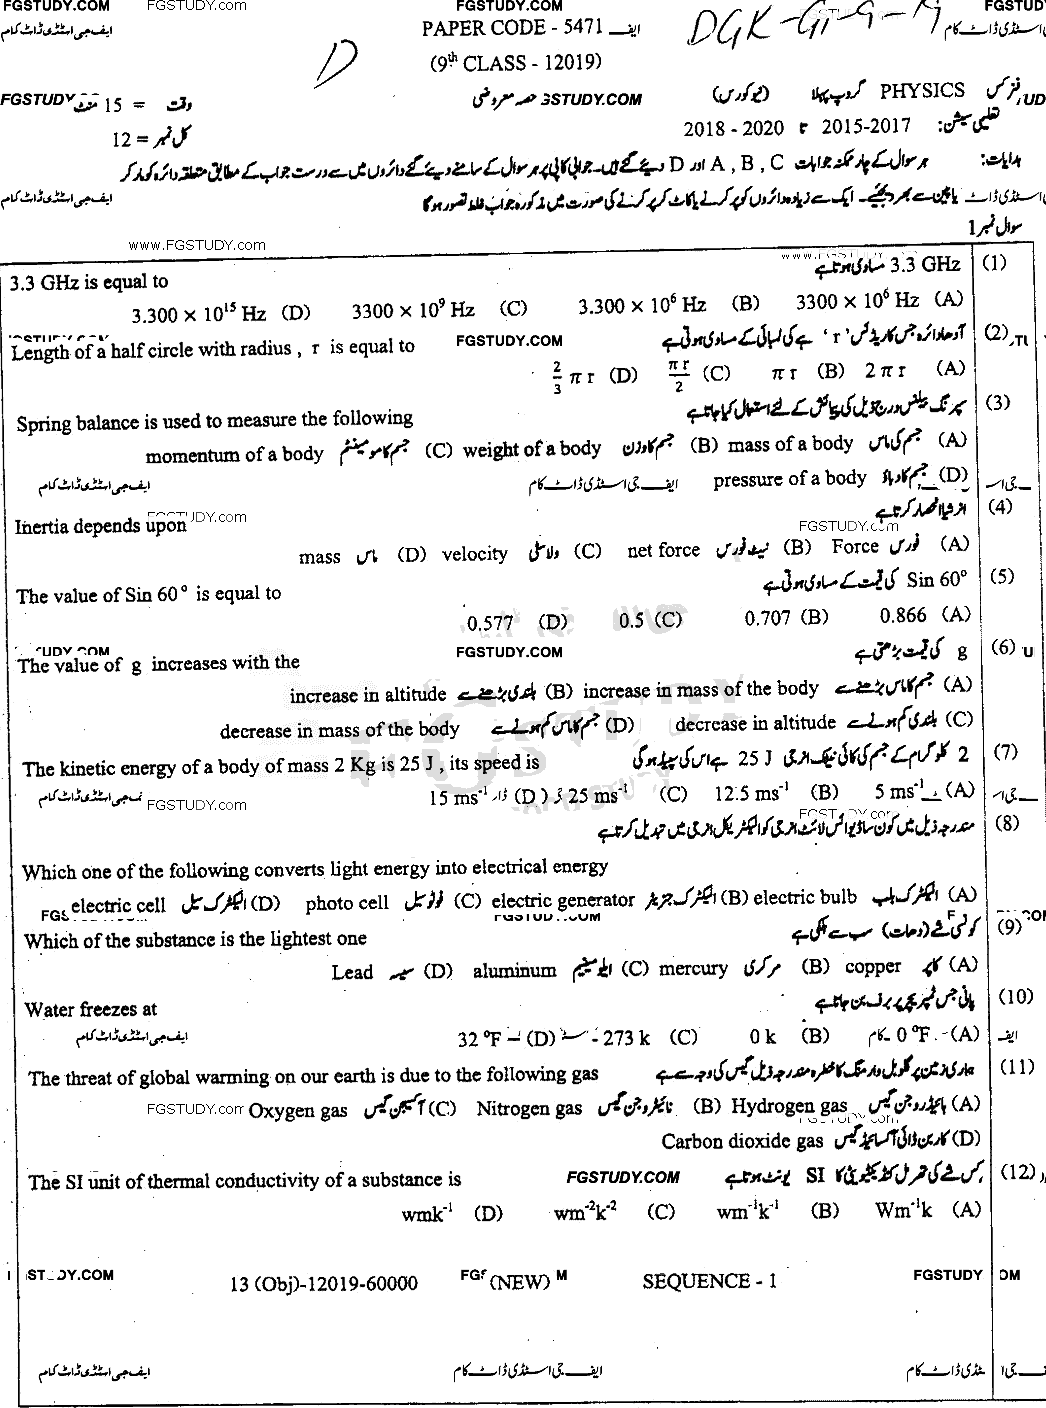 FGSTUDY.COM FGSTUDY.COM FGSTUDY.COM FGSTUD
ایف جی اسٹڈی ڈاٹ کام PAPER CODE - 5471 ایف DGK-G1-9-19 اسٹڈی ڈاٹ کام
D (9th CLASS - 12019)
FGSTUDY وقت = 15 منٹ حصہ معروضی GSTUDY.COM (نیو کورس) گروپ پہلا PHYSICS فزکس UD
کل نمبر = 12 2018 - 2020 تا 2015-2017 :تعلیمی سیشن
ہدایات: ہر سوال کے چار ممکنہ جوابات A , B , C اور D دیئے گئے ہیں۔ جوابی کاپی پر ہر سوال کے سامنے دیئے گئے دائروں میں سے درست جواب کے مطابق متعلقہ دائرہ کو مارکر
اسٹڈی ڈاٹ یا پین سے بھر دیجئے۔ ایک سے زیادہ دائروں کو پر کرنے یا کاٹ کر پر کرنے کی صورت میں مذکورہ جواب غلط تصور ہوگا ایف جی اسٹڈی ڈاٹ کام
www.FGSTUDY.com سوال نمبر 1
(1) 3.3 GHz مساوی ہوتا ہے
3.3 GHz is equal to
3.300 × 10¹⁵ Hz (D) 3300 × 10⁹ Hz (C) 3.300 × 10⁶ Hz (B) 3300 × 10⁶ Hz (A)
(2) آدھا دائرہ جس کا ریڈیس 'r' ہے کی لمبائی کے مساوی ہوتی ہے FGSTUDY.COM
Length of a half circle with radius , r is equal to
2/3 π r (D) π r/2 (C) π r (B) 2 π r (A)
(3) سپرنگ بیلنس درج ذیل کی پیمائش کے لئے استعمال کیا جاتا ہے
Spring balance is used to measure the following
momentum of a body جسم کا مومینٹم (C) weight of a body جسم کا وزن (B) mass of a body جسم کی ماس (A)
ایف جی اسٹڈی ڈاٹ کام ایف جی اسٹڈی ڈاٹ کام pressure of a body جسم کا دباؤ (D)
(4) انرشیا انحصار کرتا ہے
FGSTUDY.com
Inertia depends upon STUDY.com
mass ماس (D) velocity ولاسٹی (C) net force نیٹ فورس (B) Force فورس (A)
(5) Sin 60° کی قیمت کے مساوی ہوتی ہے
The value of Sin 60° is equal to
0.577 (D) 0.5 (C) 0.707 (B) 0.866 (A)
(6) g کی قیمت بڑھتی ہے FGSTUDY.COM
The value of g increases with the
increase in altitude بلندی بڑھنے سے (B) increase in mass of the body جسم کا ماس بڑھنے سے (A)
decrease in mass of the body جسم کا ماس کم ہونے سے (D) decrease in altitude بلندی کم ہونے سے (C)
(7) 2 کلوگرام کے جسم کی کائی نیٹک انرجی 25 J ہے اس کی سپیڈ ہوگی
The kinetic energy of a body of mass 2 Kg is 25 J , its speed is
FGSTUDY.com 15 ms⁻¹ (D) 25 ms⁻¹ (C) 12.5 ms⁻¹ (B) 5 ms⁻¹ (A)
(8) مندرجہ ذیل میں کون سا ڈیوائس لائٹ انرجی کو الیکٹریکل انرجی میں تبدیل کرتا ہے
Which one of the following converts light energy into electrical energy
electric cell الیکٹرک سیل (D) photo cell فوٹو سیل (C) electric generator الیکٹرک جنریٹر (B) electric bulb الیکٹرک بلب (A)
(9) کونسی شے (دھات) سب سے ہلکی ہے
Which of the substance is the lightest one
Lead لیڈ (D) aluminum ایلومینیم (C) mercury مرکری (B) copper کاپر (A)
(10) پانی جس ٹمپریچر پر برف بن جاتا ہے
Water freezes at
ایف جی اسٹڈی ڈاٹ کام 32 °F (D) - 273 k (C) 0 k (B) 0 °F (A)
(11) ہماری زمین پر گلوبل وارمنگ کا خطرہ مندرجہ ذیل گیس کی وجہ سے ہے
The threat of global warming on our earth is due to the following gas
FGSTUDY.com Oxygen gas آکسیجن گیس (C) Nitrogen gas نائٹروجن گیس (B) Hydrogen gas ہائیڈروجن گیس (A)
Carbon dioxide gas کاربن ڈائی آکسائیڈ گیس (D)
(12) کسی شے کی تھرمل کنڈکٹیویٹی کا SI یونٹ ہوتا ہے FGSTUDY.COM
The SI unit of thermal conductivity of a substance is
wmk⁻¹ (D) wm⁻²k⁻² (C) wm⁻¹k⁻¹ (B) Wm⁻¹k (A)
13 (Obj)-12019-60000 (NEW) SEQUENCE - 1 FGSTUDY
ایف جی اسٹڈی ڈاٹ کام ایف جی اسٹڈی ڈاٹ کام اسٹڈی ڈاٹ کام